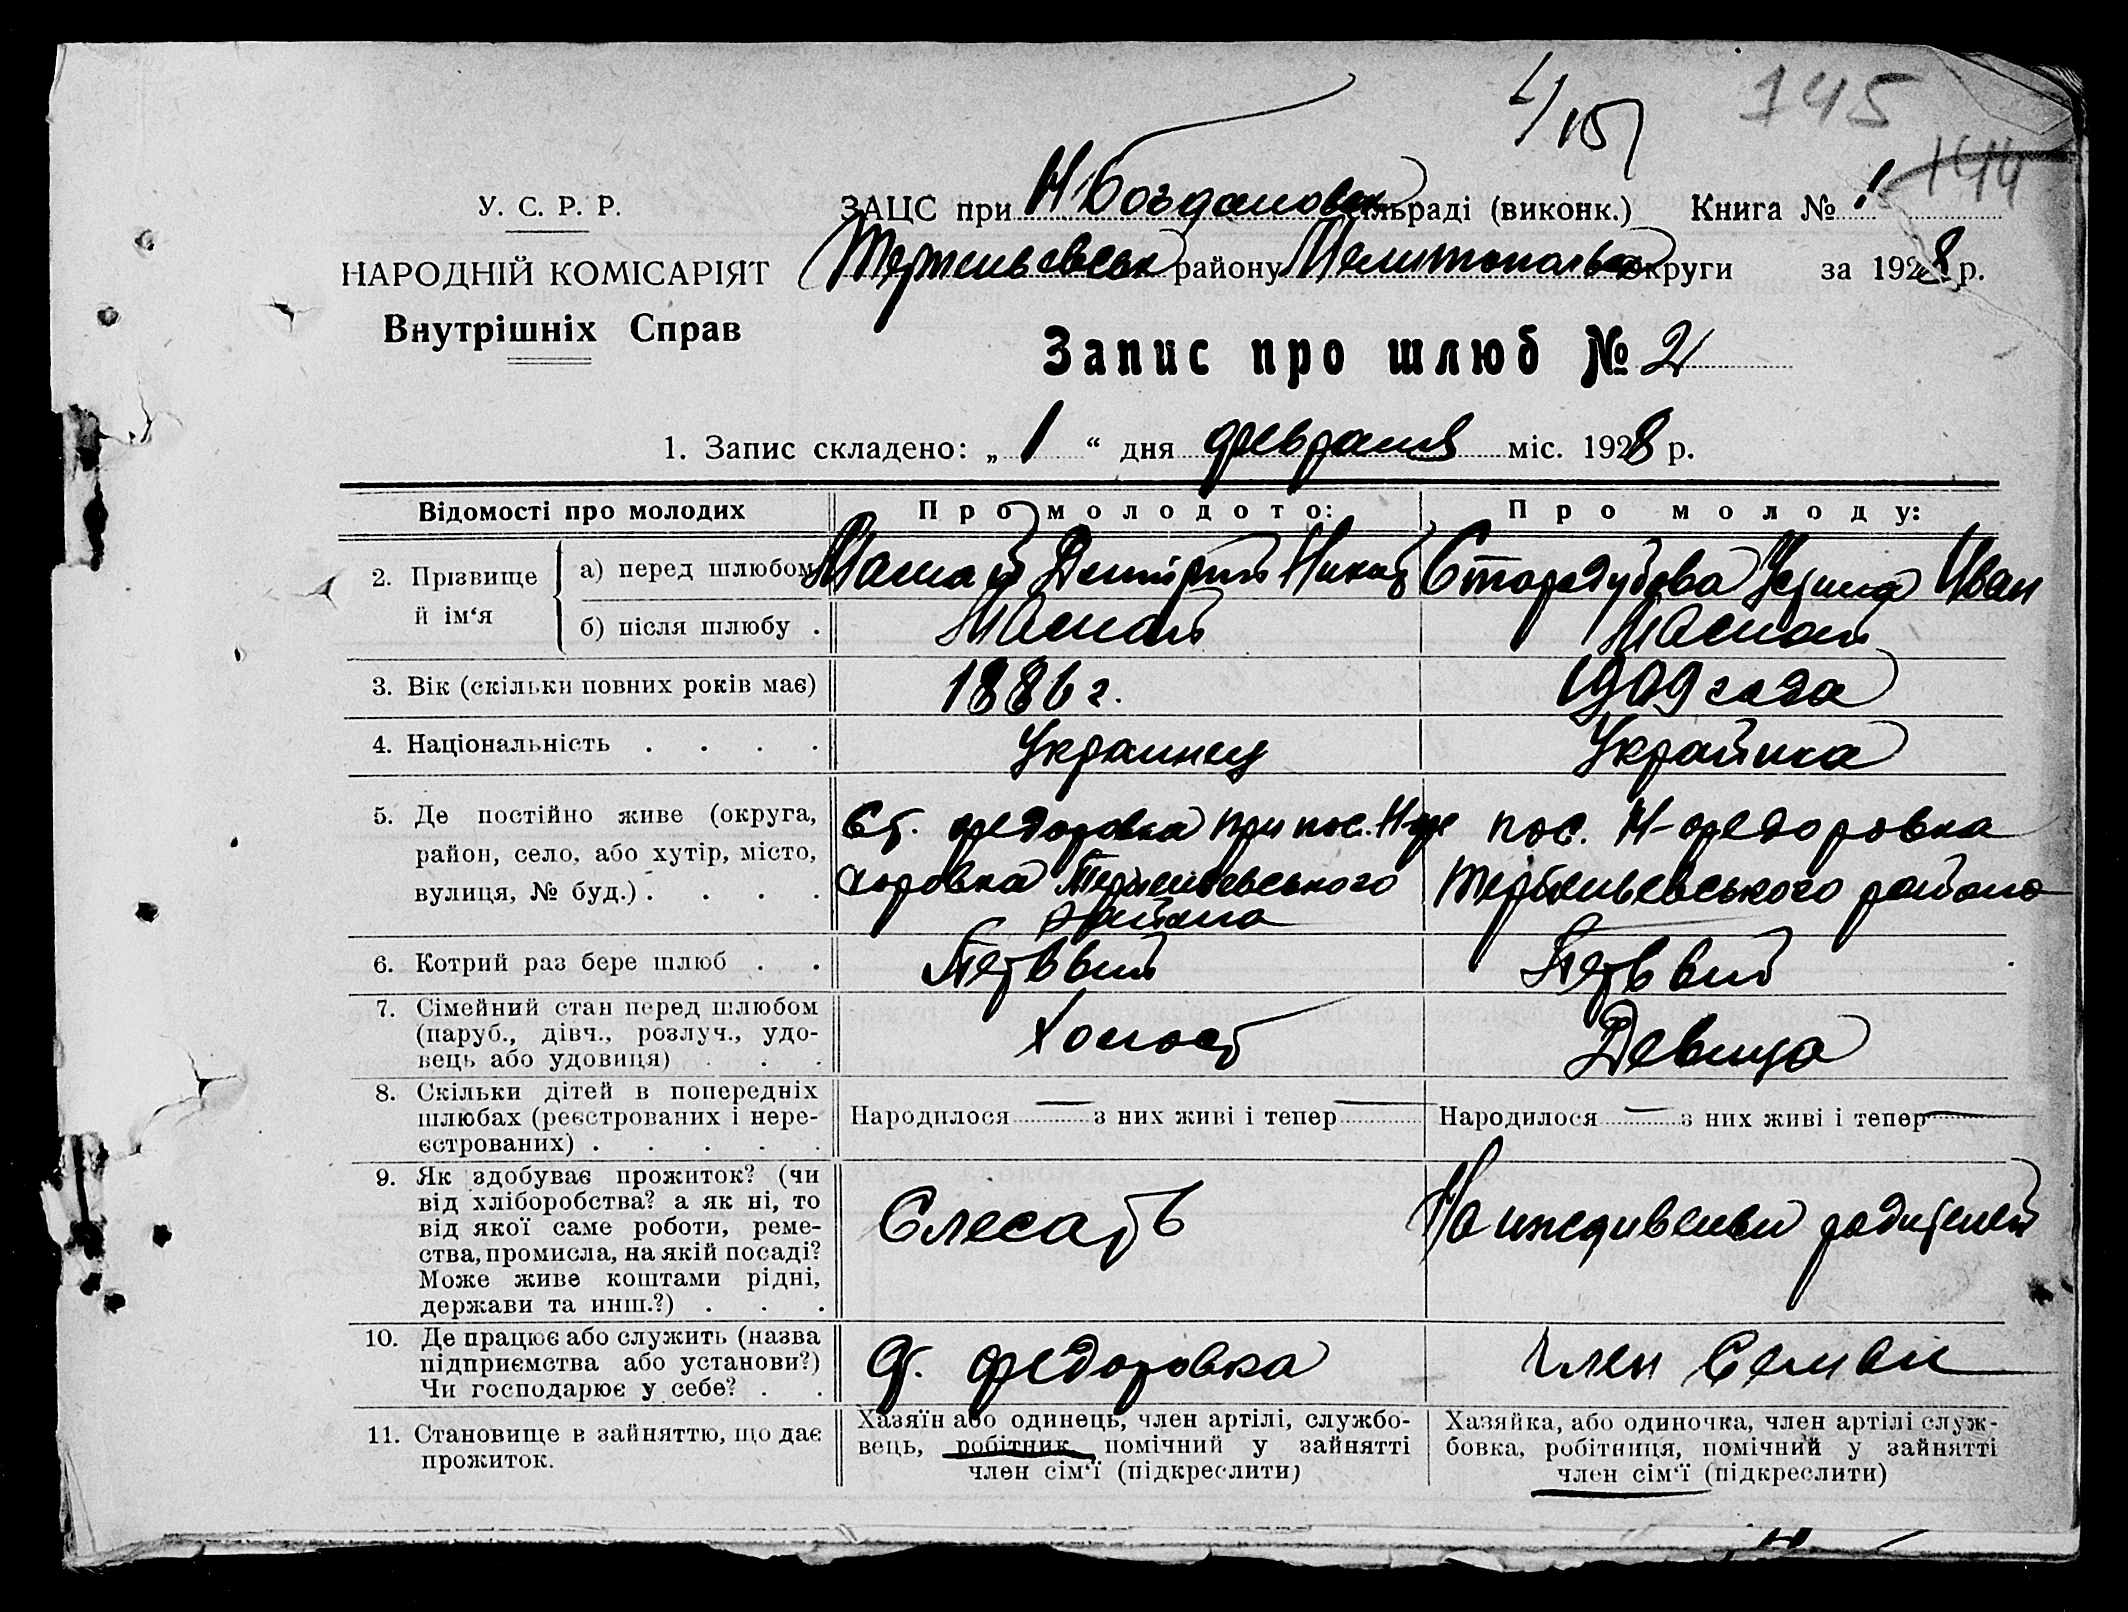 4/15
145
144
У. С. Р. Р.
НАРОДНІЙ КОМІСАРІЯТ
Внутрішніх Справ
ЗАЦС при Н Богдановск сільраді (виконк.) Книга № 1
району Мелитопольск округи за 1928 р.
Запис про шлюб № 2
1. Запис складено: „ 1 “ дня февраля міс. 1928 р.
Відомості про молодих
Про молодого:
Про молоду:
2. Прізвище й ім‘я
а) перед шлюбом
Дмитрий
Стародубова Иван
б) після шлюбу .
3. Вік (скільки повних років має)
1886 г.
1909 года
4. Національність . . . .
Украинец
Украинка
5. Де постійно живе (округа,
район, село, або хутір, місто,
вулиця, № буд.) . . . .
Ст. Федоровка при пос. Н-Фе
доровка
района
пос. Н-Федоровка
района
6. Котрий раз бере шлюб . .
Первый
Первый
7. Сімейний стан перед шлюбом
(паруб., дівч., розлуч., удо-
вець або удовиця) . . .
Холост
Девица
8. Скільки дітей в попередніх
шлюбах (реєстрованих і нере-
єстрованих) . . . . .
Народилося — з них живі і тепер —
Народилося — з них живі і тепер —
9. Як здобуває прожиток? (чи
від хліборобства? а як ні, то
від якої саме роботи, реме-
ства, промисла, на якій посаді?
Може живе коштами рідні,
держави та инш.?) . . .
Слесарь
На иждивении родителей
10. Де працює або служить (назва
підприємства або установи?)
Чи господарює у себе? . .
Ст. Федоровка
Член Семьи
11. Становище в зайняттю, що дає
прожиток.
Хазяїн або одинець, член артілі, службо-
вець, робітник, помічний у зайнятті
член сім‘ї (підкреслити)
Хазяйка, або одиночка, член артілі служ-
бовка, робітниця, помічний у зайнятті
член сім‘ї (підкреслити)